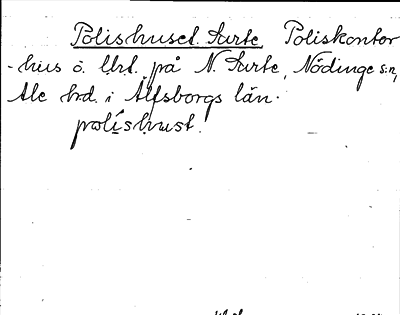 Polishuset. Surte Poliskontor
-hus o. Urt. på N. Surte, Nödinge s:n,
Ale hd. i Älfsborgs län.
polishust.